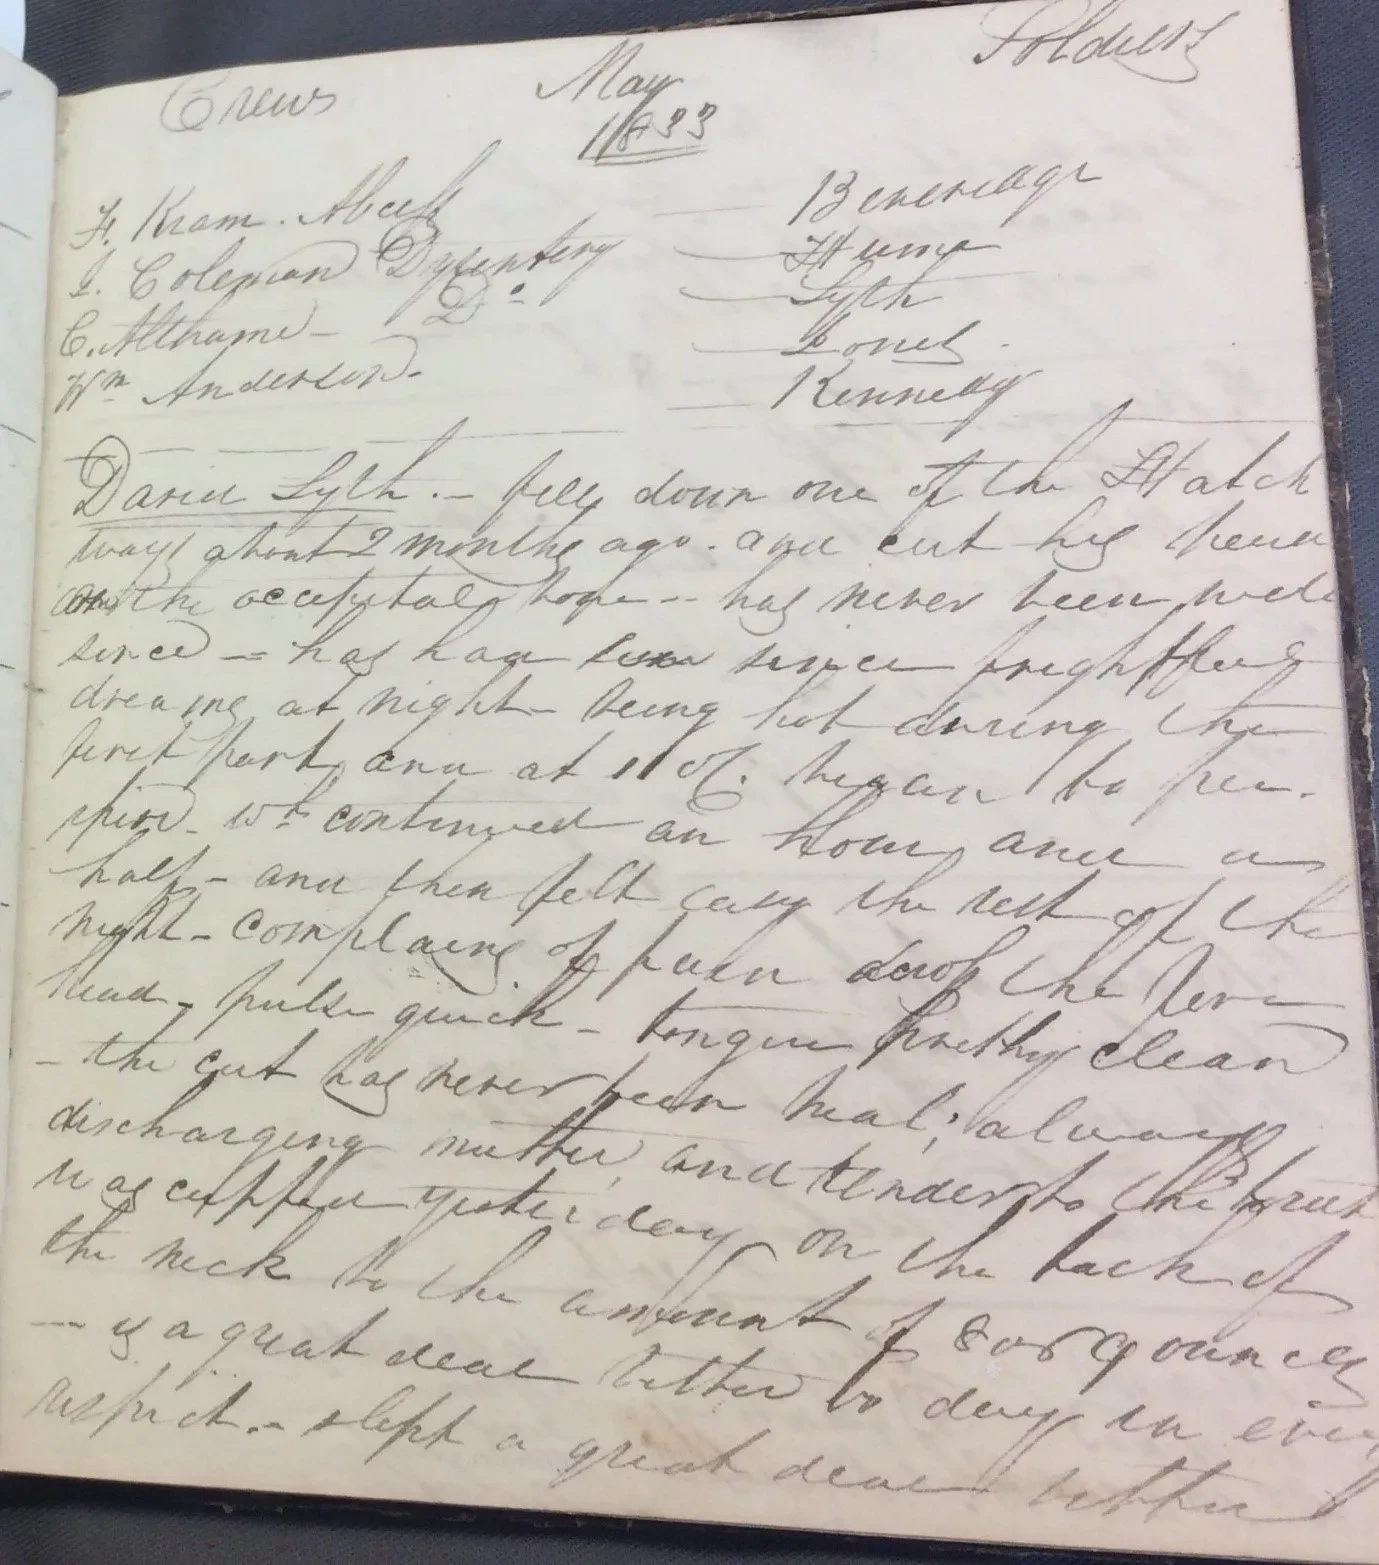 Crews May Soldiers
1833
H. Kram. Abcess — Beveredge
J. Coleman Dysentery — Hume
C. Althame – Do — Lyth
Wm Anderson. — Jones.
— Kennedy
Daniel Lyth. – fell down one of the Hatch
ways about 2 months ago. and cut his head
on the occipital bone – has never been well
since – has had since frightful
dreams at night – being hot during the
first part and at 11 o'c. began to per-
spire – wh continued an hour and a
half – and then felt easy the rest of the
night – complains of pain across the fore
head – pulse quick – tongue pretty clean
– the cut has never been heal; always
discharging matter, and tender to the touch
was cupped yesterday on the back of
the neck to the amount of 8 or 9 ounces
— is a great deal better to day in every
respect. – slept a great deal better